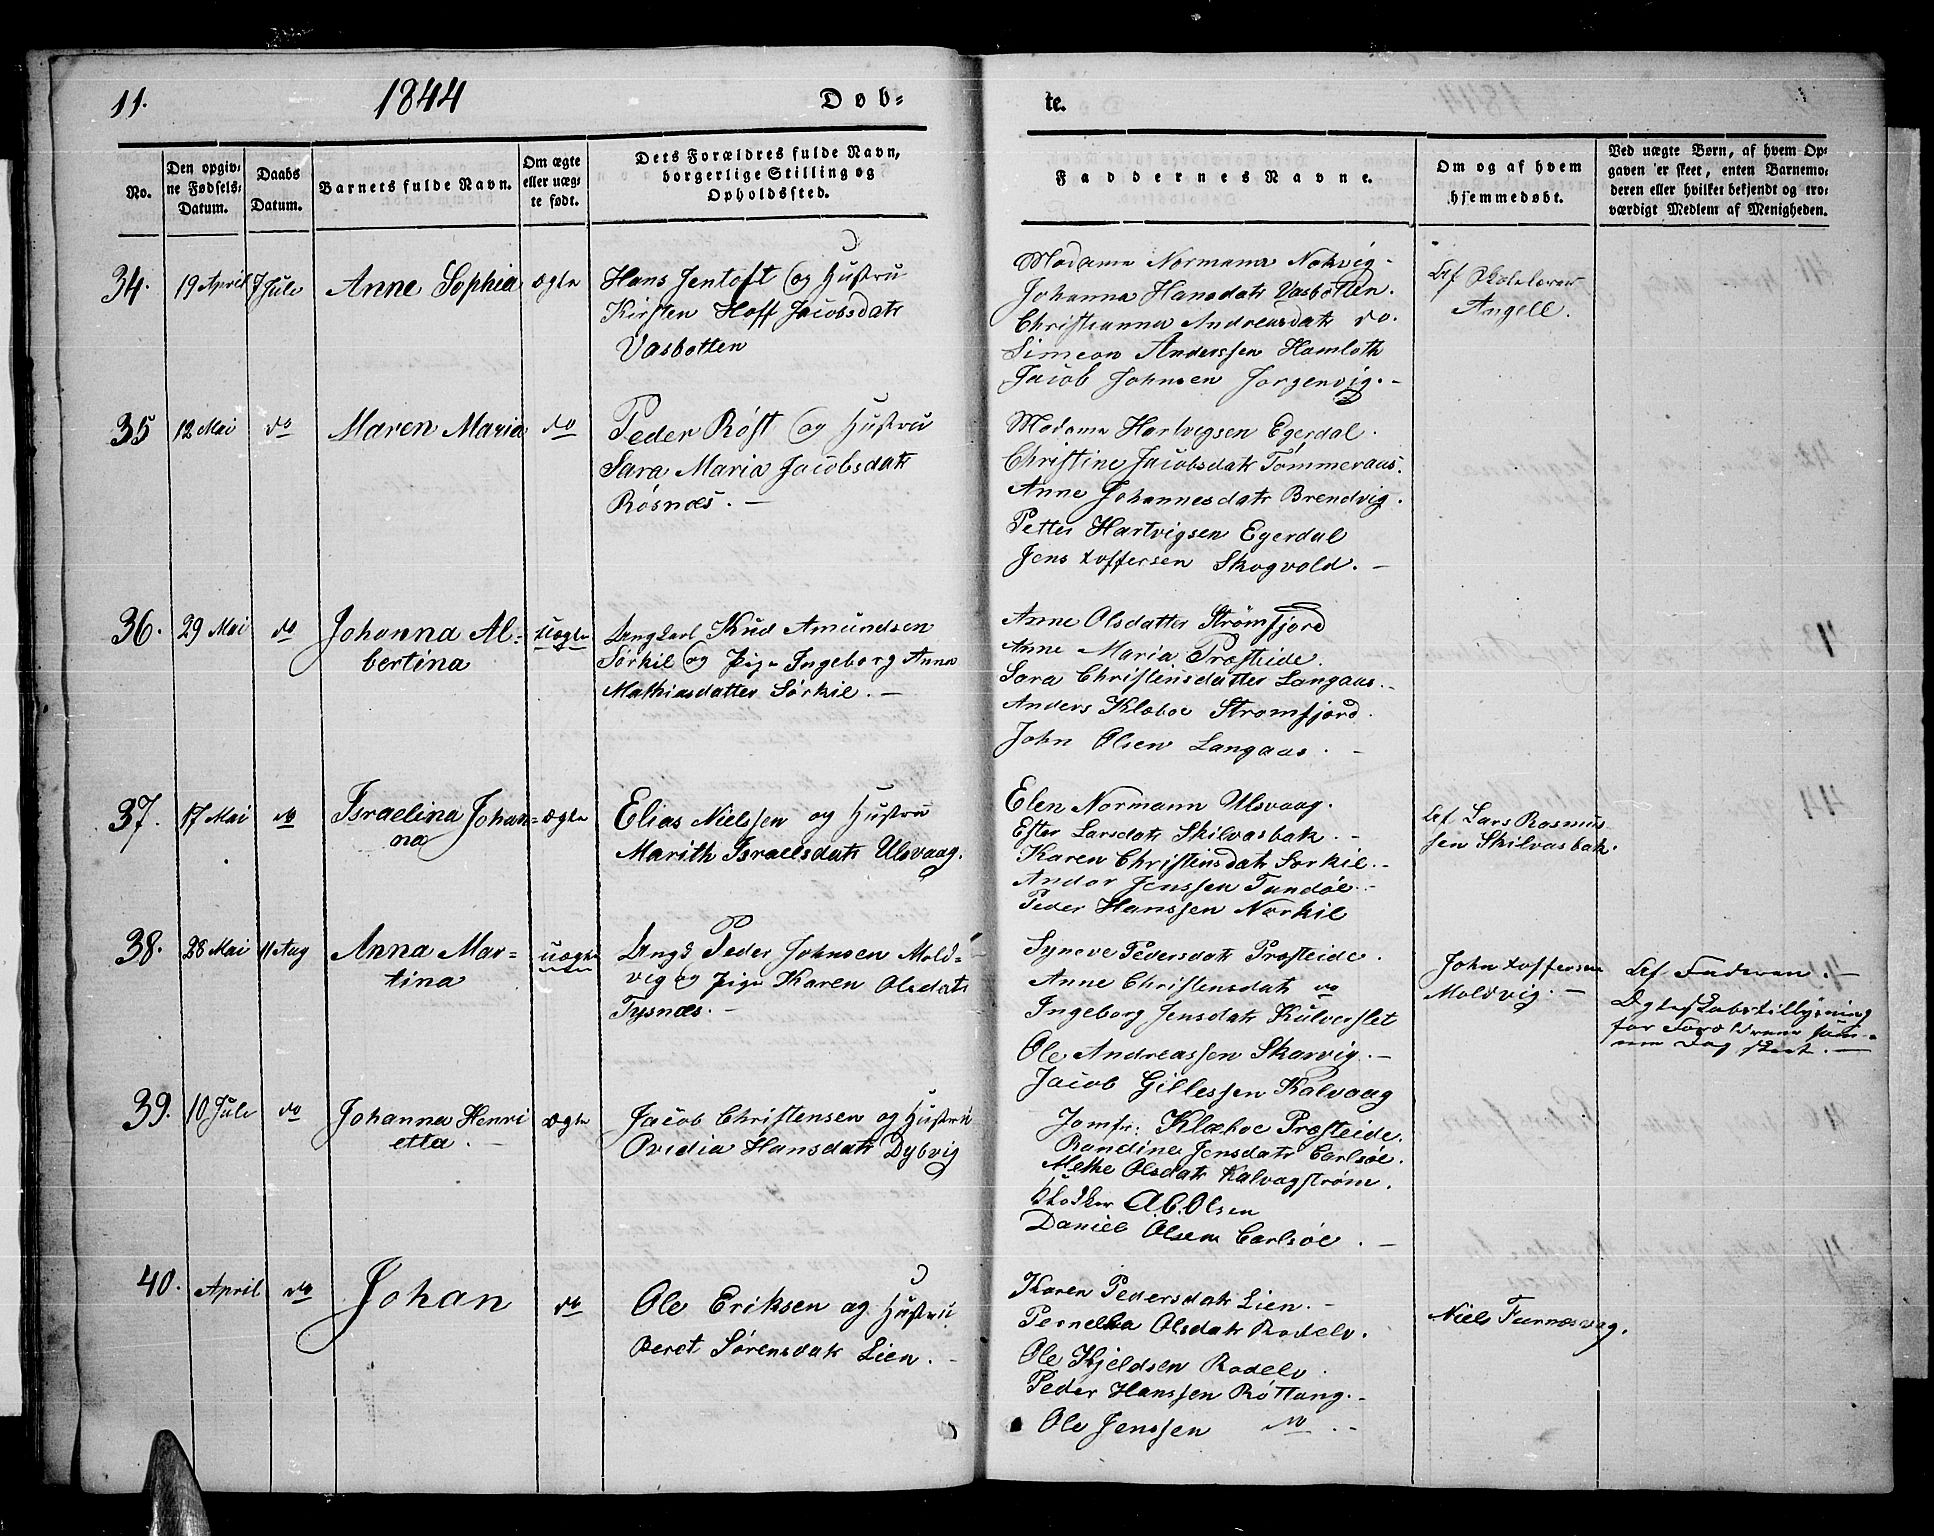 11.
1844
Døb-
te.
No.
Den opgiv-
ne Fødsels-
Datum.
Daabs
Datum.
Barnets fulde Navn.
Om ægte
eller uæg-
te født.
Dets Forældres fulde Navn,
borgerlige Stilling og
Opholdssted.
Faddernes Navne.
Om og af hvem
hjemmedøbt.
Ved uægte Børn, af hvem Op-
gaven er skeet, enten Barnemo-
deren eller hvilket bekjendt og tro-
værdigt Medlem af Menigheden.
34. 19 April 7 Jule Anne Sophia ægte
Hans Jentoft og Hustru
Kirsten Hoff Jacobsdatr
Vasbotten
Madame Normann Nøkvig -
Johanna Hansdatr Vasbotten.
Christianna Andreasdatr do.
Simeon Anderssen Hamloth
Jacob Johnsen Jorgenvig. -
Af Skolelærer
Angell.
35 12 Mai do Maren Maria do
Peder Röst og Hustru
Sara Maria Jacobsdatr
Røsnæs. -
Madame Hartvigsen Egerdal.
Christine Jacobsdatr Tømmeraas.
Anne Johannesdatr Brendvig.
Petter Hartvigsen Egerdal
Jens Toffersen Skogvold. -
36. 29 Mai do Johanna Al-
bertina
uægte
Ungkarl Knud Amundsen
Sørkil og Pige Ingeborg Anna
Mathiasdatter Sørkil. -
Anne Olsdatter Strømfjord
Anne Maria Præsteide.
Sara Christensdatter Langaas. -
Anders Klæboe Strømfjord.
John Olsen Langaas. -
37. 17 Mai do Israelina Johan-
na
ægte
Elias Nielssen og Hustru
Marith Israelsdatr Ulsvaag.
Elen Normann Ulsvaag.
Ester Larsdatr Skilvasbak. -
Karen Christensdatr Sørkil. -
Andor Jenssen Tundøe. -
Peder Hanssen Nørkil
Af Lars Rasmus
sen Skilvasbak.
38. 28 Mai 11 Aug Anna Mar-
tina
uægte
Ungk Peder Johnsen Mold-
vig og Pige Karen Olsdatr
Tysnæs. -
Syneve Pedersdatr Præsteide.
Anne Christensdatr do
Ingeborg Jensdatr Kulverslet
Ole Andreassen Skarvig. -
Jacob Gillessen Kalvaag
John Toffersen
Moldvig. -
Af Faderen. -
Ægteskabstillysning
for Forældrene sam-
me Dag skeet. -
39. 10 Jule do Johanna Henri
etta. -
ægte
Jacob Christensen og Hustru
Ovidia Hansdatr Dybvig
Jomfr: Klæboe Præsteide.
Randine Jensdatr Carlsøe.
Methe Olsdatr Kalvagstrøm.
Klokker A.C. Olsen
Daniel Olsen Carlsøe. -
40. April do Johan do
Ole Eriksen og Hustru
Beret Sørensdatr Lien. -
Karen Pedersdatr Lien. -
Pernella Olsdatr Rodelv.
Ole Kjeldsen Rodelv.
Peder Hanssen Röttang. -
Ole Jenssen do. -
Niels Furnæsvag.